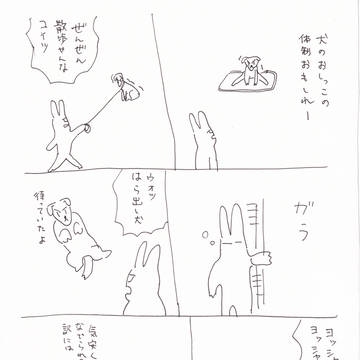 犬のおしっこの
体制おもしれー
ぜんぜん
散歩せんな
コイツ
ガラ
ウオッ
はら出し犬
待っていたよ
ヨッシャ
ヨッシャ
気安く
訳には